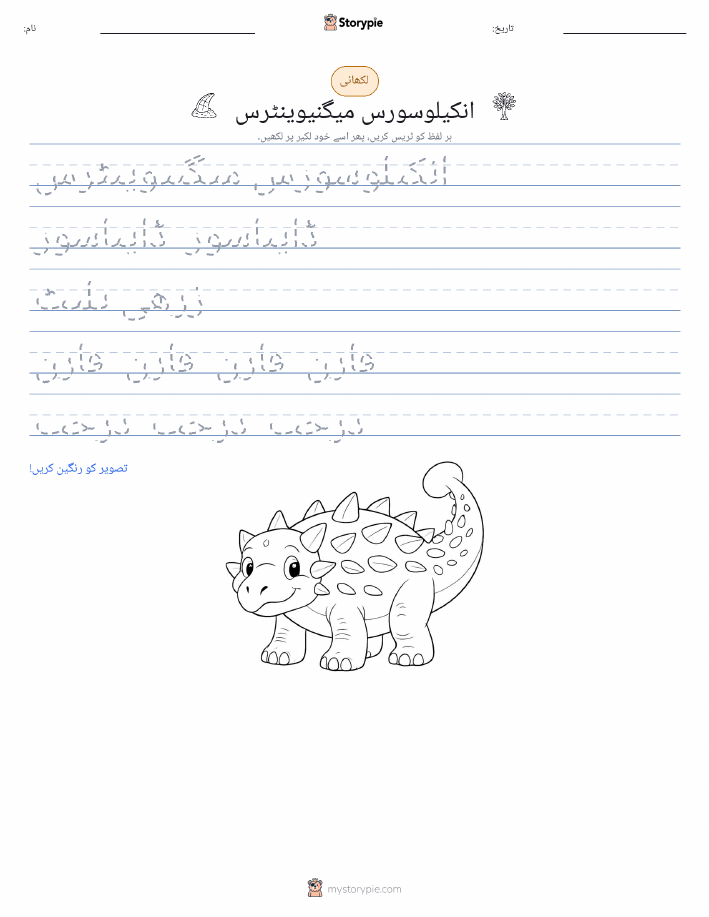 نام:
Storypie
تاریخ:
لکھائی
انکیلوسورس میگنیوینٹرس
ہر لفظ کو ٹریس کریں، پھر اسے خود لکیر پر لکھیں۔
انکیلوسورس میگنیوینٹرس
ڈایناسور ڈایناسور
زرھی پلیٹ
قارین قارین قارین قارین
تصویر کو رنگین کریں!
mystorypie.com